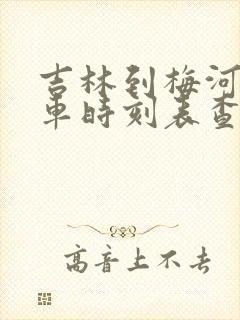 吉林到梅河
車時刻表查
高音上不去